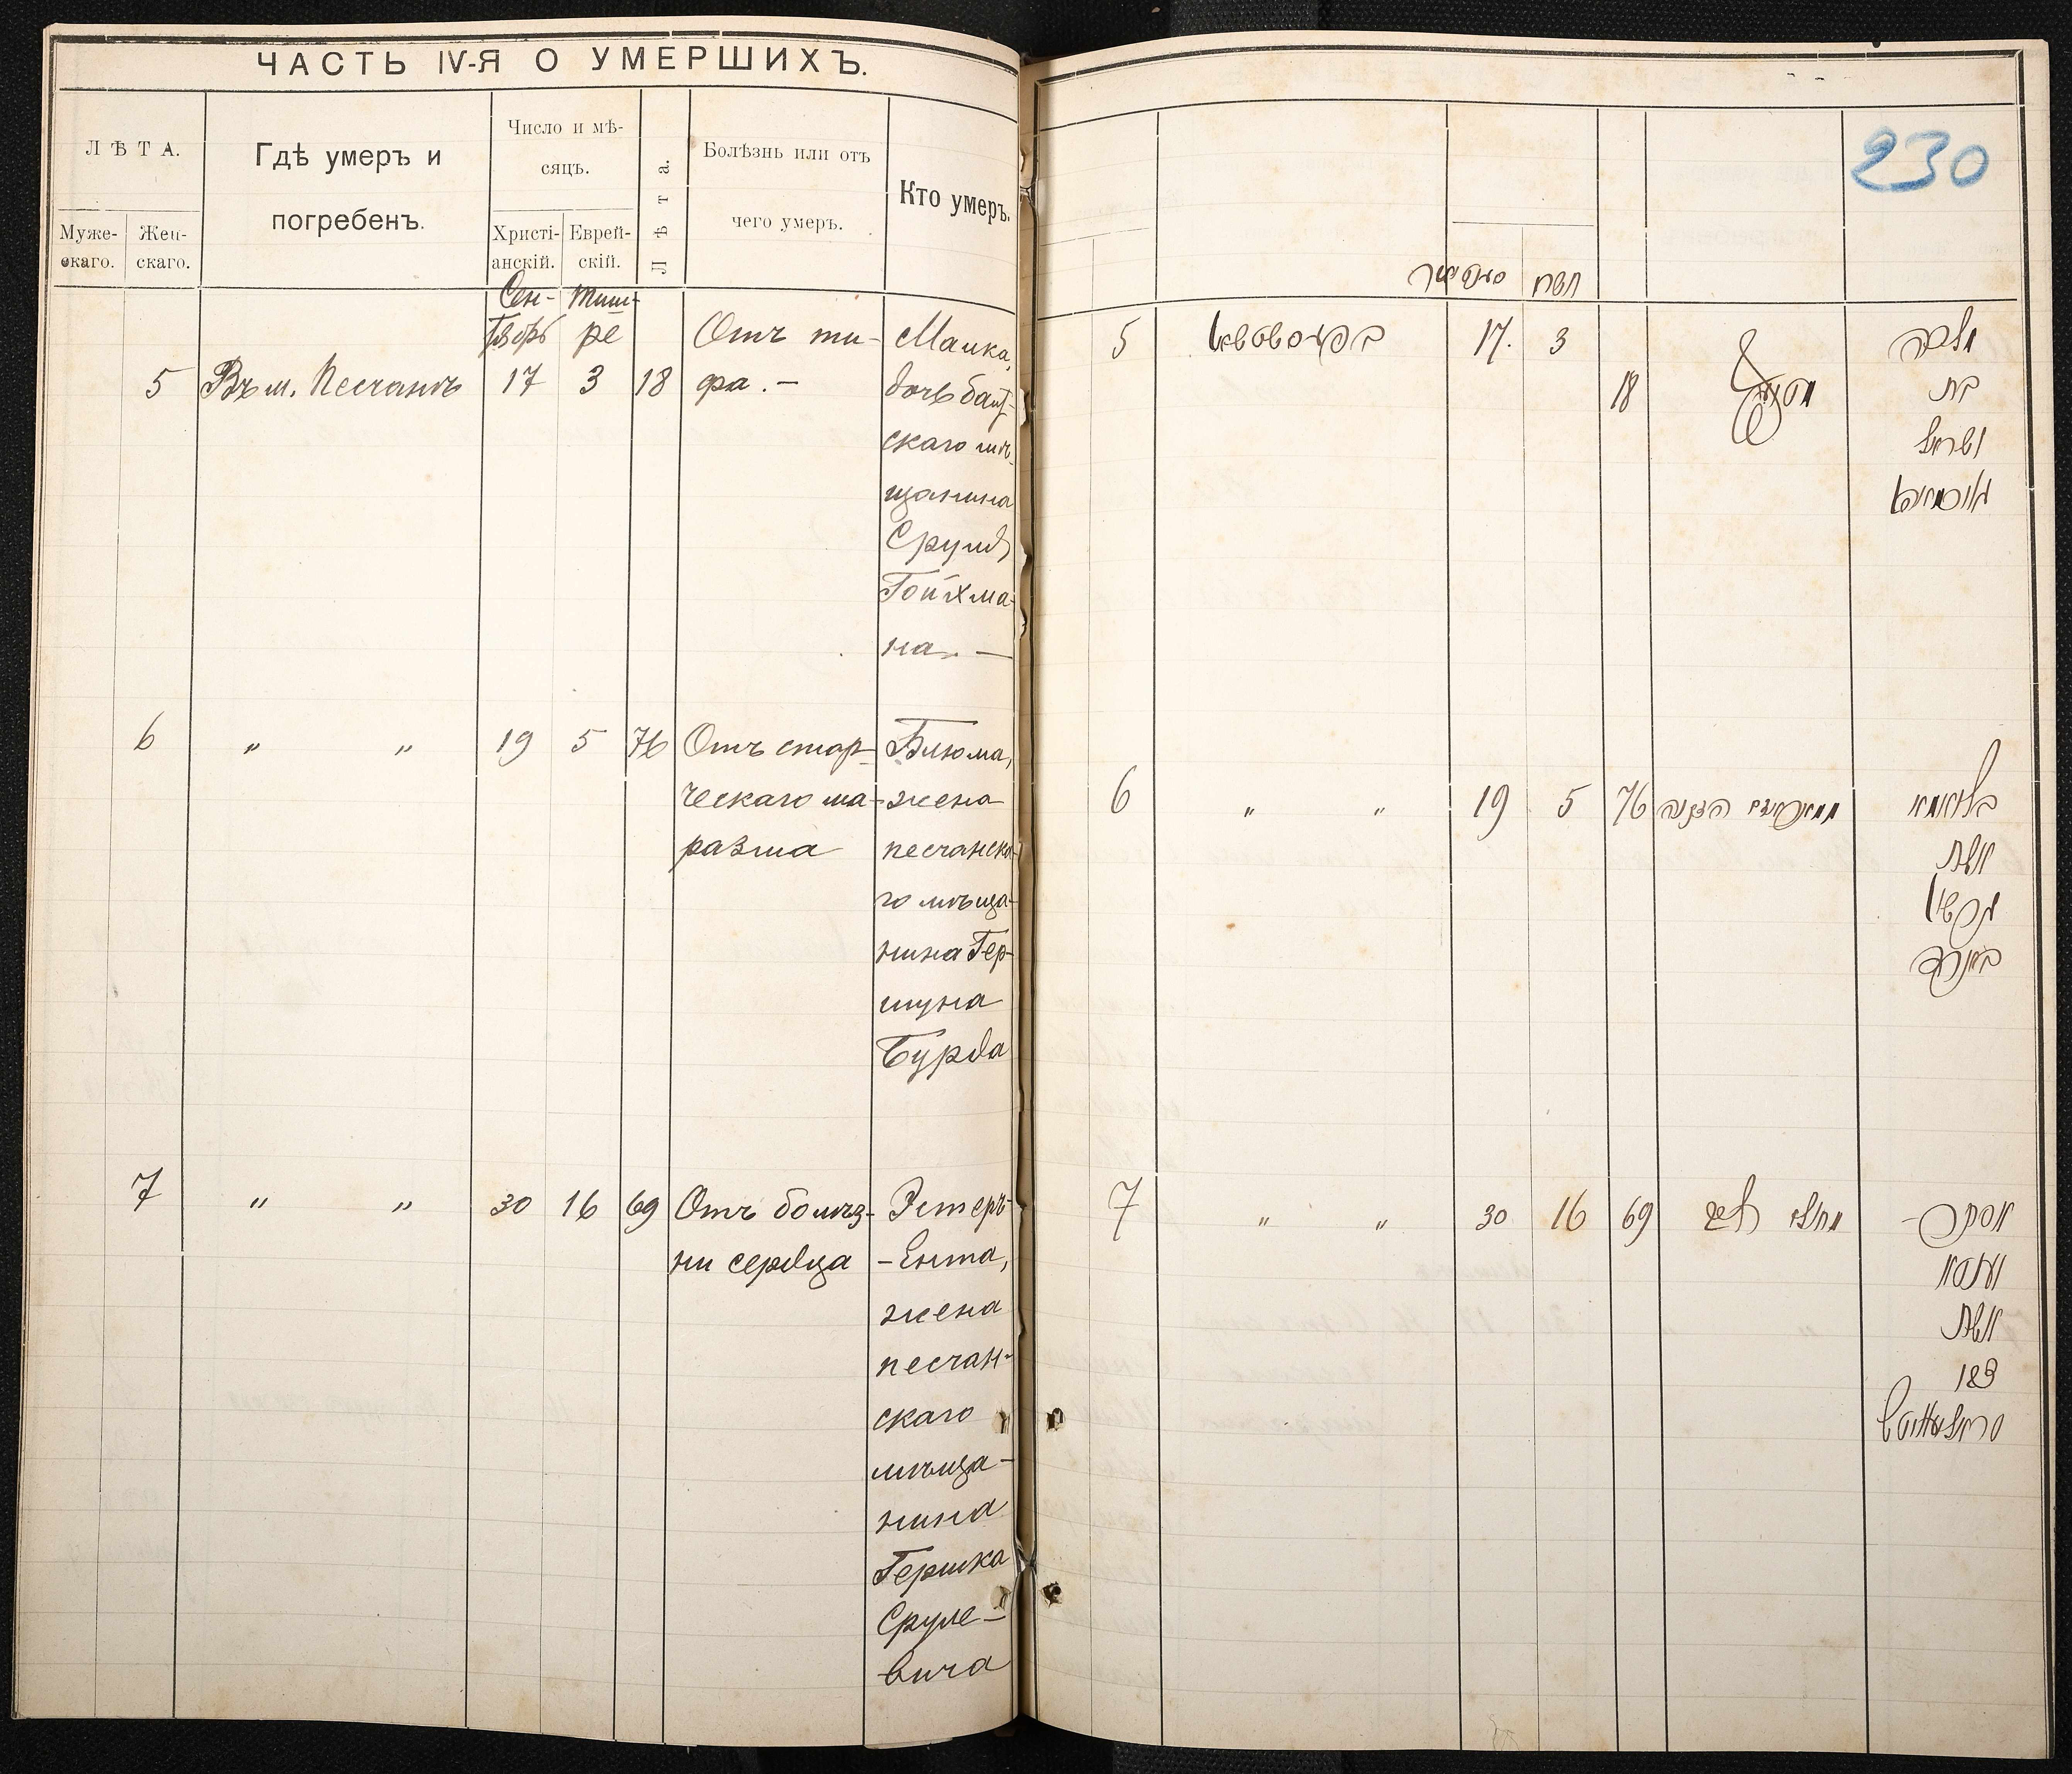 ЧАСТЬ IV-Я О УМЕРШИХЪ.
ЛѢТА.
Муже-
скаго.
Жен-
скаго.
Гдѣ умеръ и
погребенъ.
Число и мѣ-
сяцъ.
Христі-
анскій.
Еврей-
скій.
Лѣта.
Болѣзнь или отъ
чего умеръ.
Кто умеръ.
Сен- Тиш-
тябрь ре
5 Въ м. Песчанѣ 17 3 18
Отъ ти-
фа. —
Малка,
дочь балт-
скаго мѣ-
щанина
Сруля
Гойхма-
на. —
6 " " 19 5 76
Отъ стар-
ческаго ма-
разма
Блюма,
жена
песчанска-
го мѣща-
нина Гер-
шуна
Бурда
7 " " 30 16 69
Отъ болѣз-
ни сердца
Эстеръ-
-Ента,
жена
песчан-
скаго
мѣща-
нина
Гершка
Сруле-
вича
230
תשרי
5 17. 3 18
מלכה
בת
ישראל
גויכמאן
6 " " 19 5 76
בלומא
אשת
גרשון
7 " " 30 16 69
מחלי לב
אסתר-
יענטא
אשת
צבי